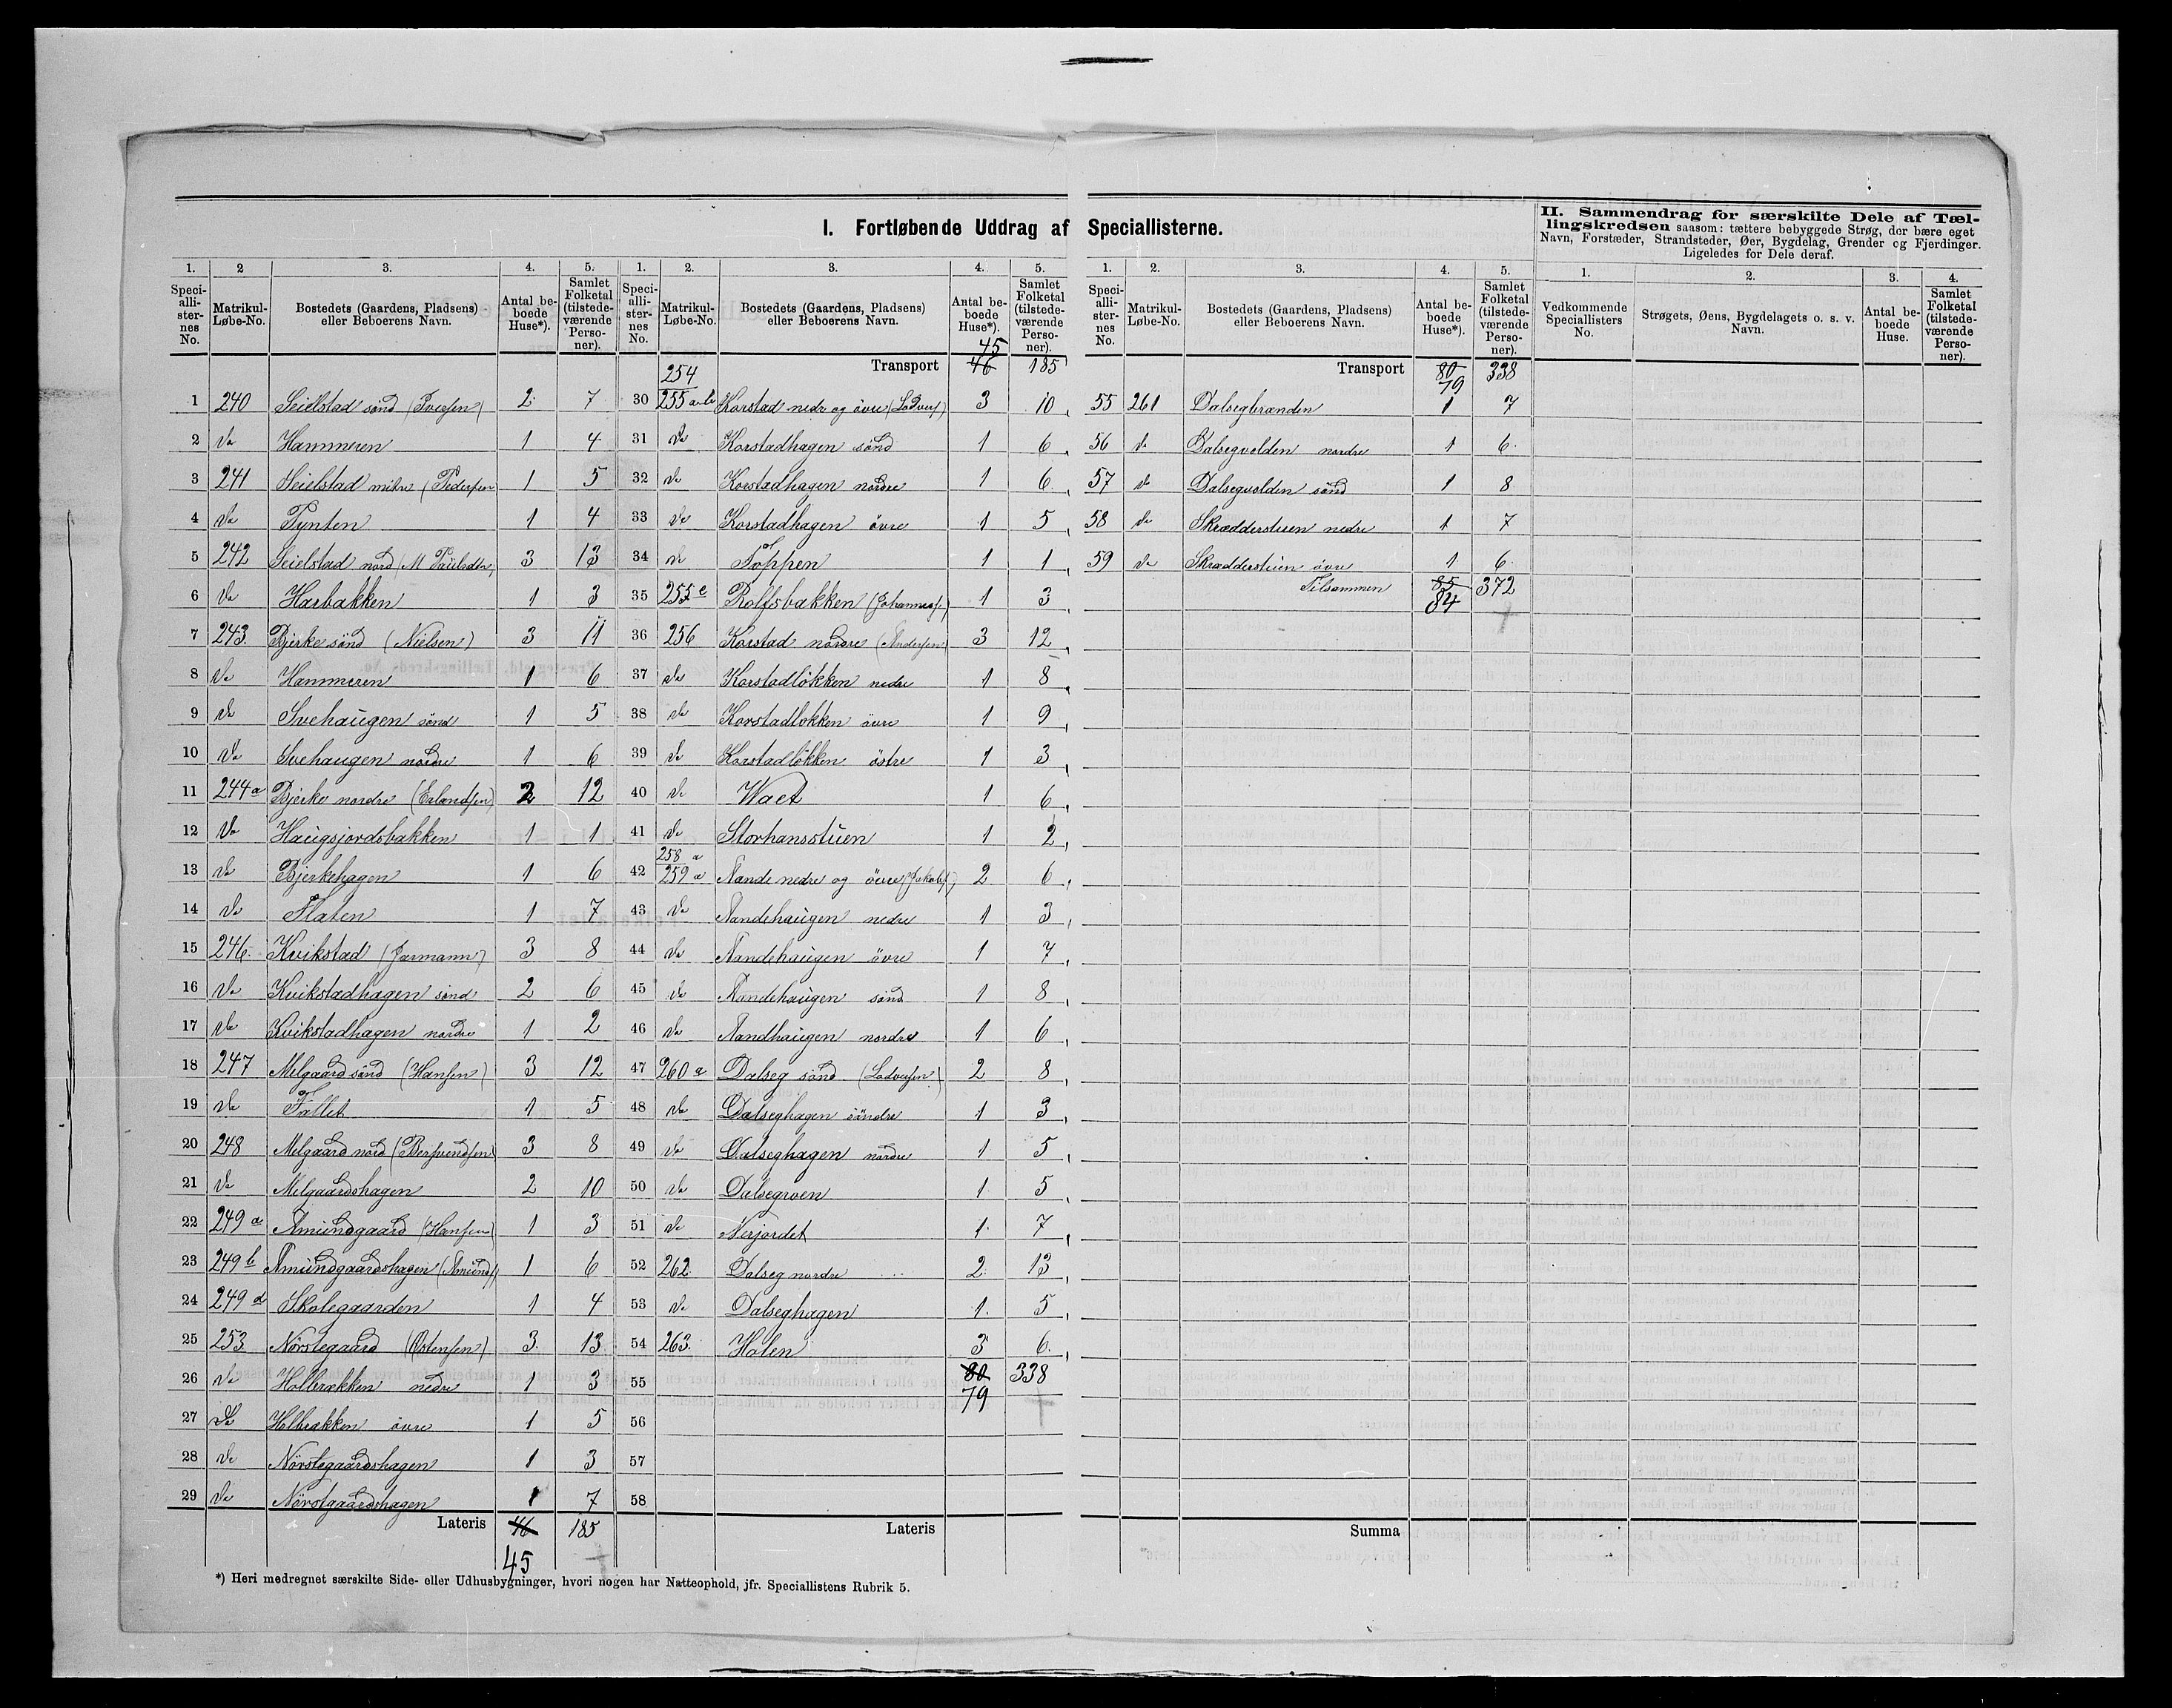 I. Fortløbende Uddrag af Speciallisterne.
1. 2 3. 4. 5.
Speciallisternes No. Matrikul-Løbe-No. Bostedets (Gaardens, Pladsens) eller Beboerens Navn. Antal beboede Huse*). Samlet Folketal (tilstedeværende Personer).
1 240 Seielstad sönd (Iversen) 2 7
2 do Hammeren 1 4
3 241 Seielstad mitre (Pedersen 1 5
4 do Tynten 1 4
5 242 Seielstad nord (M Paulsdtr, 3 13
6 do Harbakken 1 3
7 243. Bjerke sönd (Nielsen) 3 11
8 do Hammeren 1 6
9 do Svehaugen sönd 1 5
10 do Svehaugen nordre 1 6
11 244a Bjerke nordre (Erlandsen) 2 12
12 do Haugsjordsbakken 1 1
13 do Bjerkehagen 1 6
14 do Flaten 1 7
15 246. Kvikstad (Jarmann) 3 8
16 do Kvikstadhagen sönd 2 6
17 do Kvikstadhagen nordre 1 2
18 247 Melgaard sönd (Hansen) 3 12
19 do Fallet 1 5
20 248 Melgaard nord (Bersvendsen 3 8
21 do Melgaardshagen 2 10
22 249 a Amundgaard (Hansen) 1 3
23 249 b Amundgaardshagen (Amunds) 1 6
24 249 d Skolegaarden 1 4
25 253. Nörstegaard (Ostensen) 3. 13
26 do Holbrækken nedre 1 3
27 do Holbrækken övre 1 5
28 do Nörstegaardshagen 1 3
29 do Nörstgaardshagen 1 7
Lateris 46 185
45
*) Heri medregnet særskilte Side- eller Udhusbygninger, hvori nogen har Natteophold, jfr. Speciallistens Rubrik 5.
1. 2. 3. 4. 5.
Speciallisternes No. Matrikul-Løbe-No. Bostedets (Gaardens, Pladsens) eller Beboerens Navn. Antal beboede Huse*). Samlet Folketal (tilstedeværende Personer).
45
Transport 46 185
254
30 255 a-b Korstad nedre og övre (Lodvers) 3 10
31 do Korstadhagen sönd 1 6
32 do Korstadhagen nordre 1 6
33 do Korstadhagen övre 1 5
34 do Toppen 1 1
35 255c Rolfsbakken (Johannes) 1 3
36 256 Korstad nordre (Andersen) 3 12
37 do Korstadlökken nedre 1 8
38 do Korstadlokken övre 1 9
39 do Korstadlökken östre 1 3
40 do Waet 1 6
41 do Storhansstuen 1 2
258 a
42 259 a Aande nedre og övre (Jakobs) 2 6
43 do Aandehaugen nedre 1 3
44 do Aandehaugen övre 1 7
45 do Aandehaugen sönd 1 8
46 do Aandhaugen nordre 1 6
47 260 a Dalseg sönd (Lodversen) 2 8
48 do Dalseghagen söndre 1 3
49 do Dalseghagen nordre 1 5
50 do Dalsegroen 1 5
51 do Nerjordet 1. 7
52 262. Dalseg nordre 2. 13
53 do Dalseghagen 1. 5
54 263. Holen 3 6
55 80 338
79
56
57
58
Lateris
1. 2. 3. 4. 5.
Speciallisternes No. Matrikul-Løbe-No. Bostedets (Gaardens, Pladsens) eller Beboerens Navn. Antal beboede Huse*). Samlet Folketal (tilstedeværende Personer).
Transport 80 338
79
55 261 Dalsegbrænden 1 7
56 do Dalsegvolden nordre 1 6.
57 do Dalsegvolden sönd 1 8
58 do Skrædderstuen nedre 1 7
59 do Skrædderstuen övre 1. 6.
Tilsammen 85 372
84
Summa
II. Sammendrag for særskilte Dele af Tællingskredsen saasom: tættere bebyggede Strøg, der bære eget Navn, Forstæder, Strandsteder, Øer, Bygdelag, Grender og Fjerdinger. Ligeledes for Dele deraf.
1. 2. 3. 4.
Vedkommende Speciallisters No. Strøgets, Øens, Bygdelagets o. s. v. Navn. Antal beboede Huse. Samlet Folketal (tilstedeværende Personer).